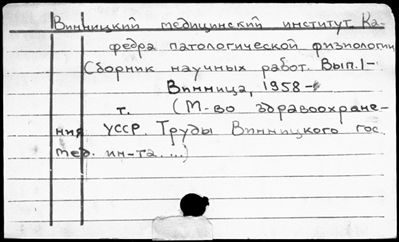 Винницкий медицинский институт. Ка-
федра патологической физиологии
Сборник научных работ. Вып. 1-
Винница, 1958-
т. (М-во здравоохране-
ния УССР. Труды Винницкого гос.
мед. ин-та. ...)